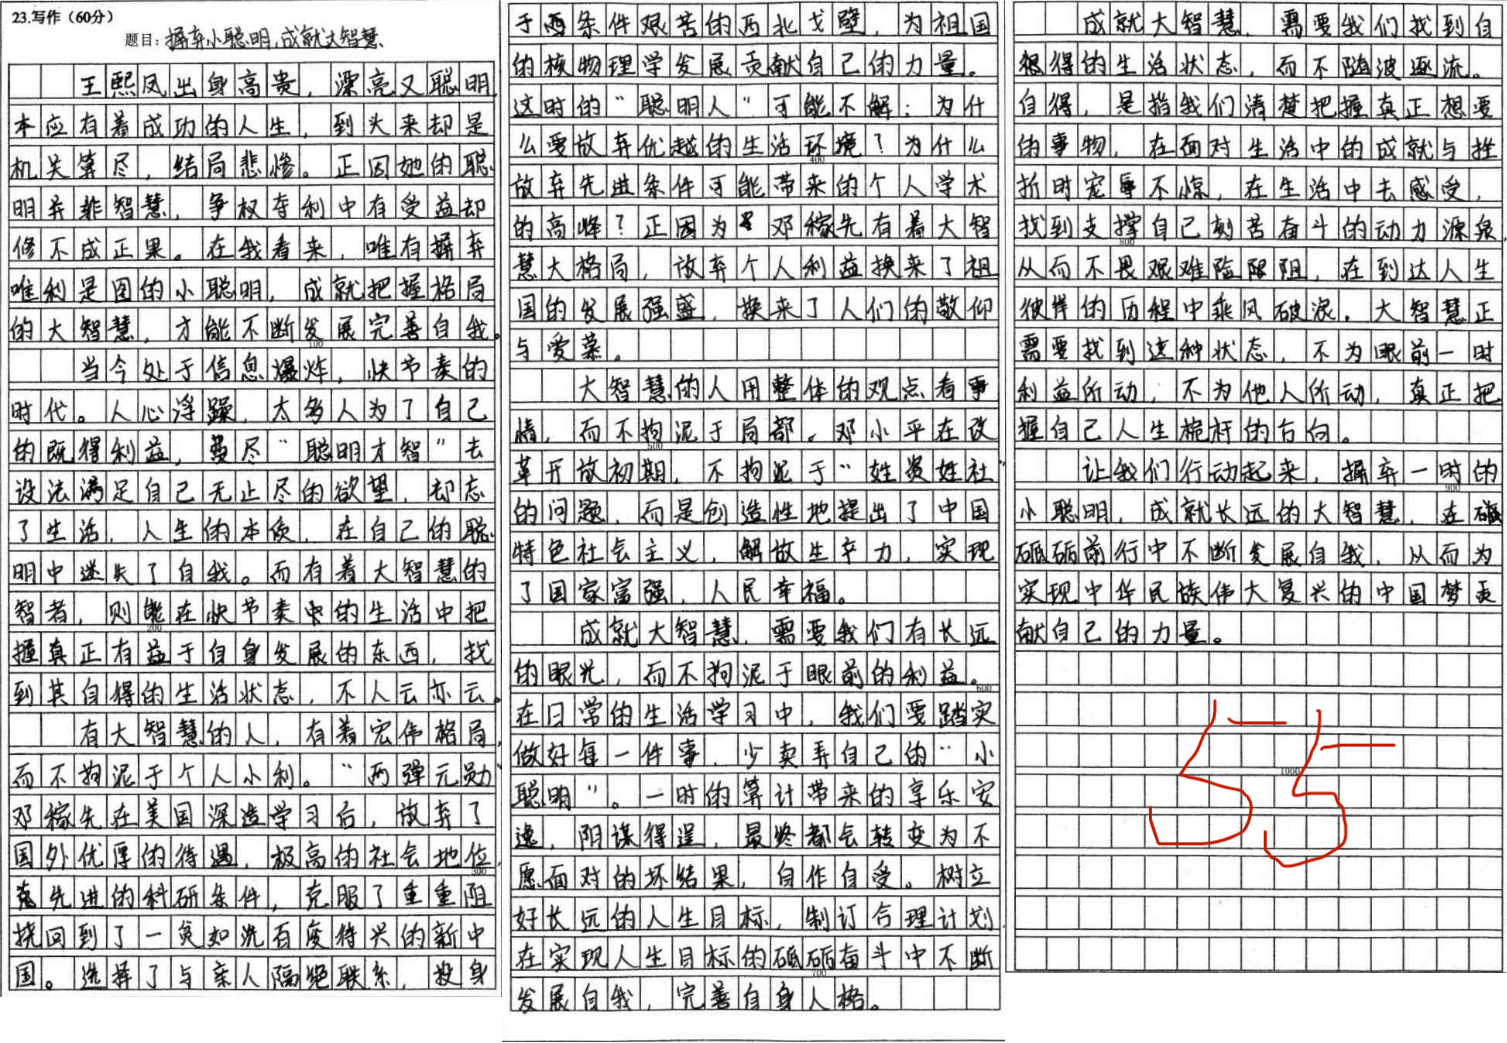 23.写作（60分）
题目：摒弃小聪明,成就大智慧
王熙凤出身高贵，漂亮又聪明，
本应有着成功的人生，到头来却是
机关算尽，结局悲惨。正因她的聪
明并非智慧，争权夺利中有受益却
修不成正果。在我看来，唯有摒弃
唯利是图的小聪明，成就把握格局
的大智慧，才能不断发展完善自我。
100
当今处于信息爆炸，快节奏的
时代。人心浮躁，太多人为了自己
的既得利益，费尽“聪明才智”去
设法满足自己无止尽的欲望，却忘
了生活，人生的本质，在自己的聪
明中迷失了自我。而有着大智慧的
智者，则能在快节奏中的生活中把
200
握真正有益于自身发展的东西，找
到其自得的生活状态，不人云亦云。
有大智慧的人，有着宏伟格局，
而不拘泥于个人小利。“两弹元勋”
邓稼先在美国深造学习后，放弃了
国外优厚的待遇，极高的社会地位，
300
先进的科研条件，克服了重重阻
挠回到了一贫如洗百废待兴的新中
国。选择了与亲人隔绝联系，投身
于西条件艰苦的西北戈壁，为祖国
的核物理学发展贡献自己的力量。
这时的“聪明人”可能不解：为什
么要放弃优越的生活环境？为什么
400
放弃先进条件可能带来的个人学术
的高峰？正因为邓稼先有着大智
慧大格局，放弃个人利益换来了祖
国的发展强盛，换来了人们的敬仰
与爱慕。
大智慧的人用整体的观点看事
情，而不拘泥于局部。邓小平在改
500
革开放初期，不拘泥于“姓资姓社”
的问题，而是创造性地提出了中国
特色社会主义，解放生产力，实现
了国家富强，人民幸福。
成就大智慧，需要我们有长远
的眼光，而不拘泥于眼前的利益。
600
在日常的生活学习中，我们要踏实
做好每一件事，少卖弄自己的“小
聪明”。一时的算计带来的享乐安
逸，阴谋得逞，最终都会转变为不
愿面对的坏结果，自作自受。树立
好长远的人生目标，制订合理计划，
在实现人生目标的砥砺奋斗中不断
700
发展自我，完善自身人格。
成就大智慧，需要我们找到自
想得的生活状态，而不随波逐流。
自得，是指我们清楚把握真正想要
的事物，在面对生活中的成就与挫
折时宠辱不惊，在生活中去感受，
找到支撑自己刻苦奋斗的动力源泉，
800
从而不畏艰难险阻，在到达人生
彼岸的历程中乘风破浪。大智慧正
需要找到这种状态，不为眼前一时
利益所动，不为他人所动，真正把
握自己人生桅杆的方向。
让我们行动起来，摒弃一时的
900
小聪明，成就长远的大智慧，在
砥砺前行中不断发展自我，从而为
实现中华民族伟大复兴的中国梦贡
献自己的力量。
1000
55